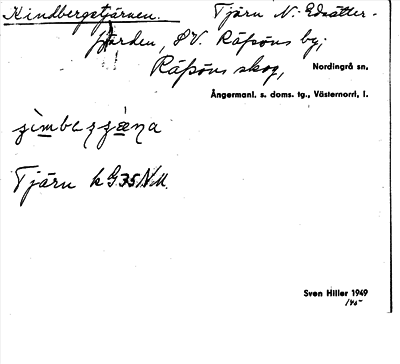 Kindbergstjärnen. Tjärn N. Edsätter-
fjärden, SV. Räfsöns by;
Räfsöns skog, Nordingrå sn,
Ångermanl. s. doms. tg., Västernorrl. l.
Tjärn k G35 N.M.
Sven Hiller 1949